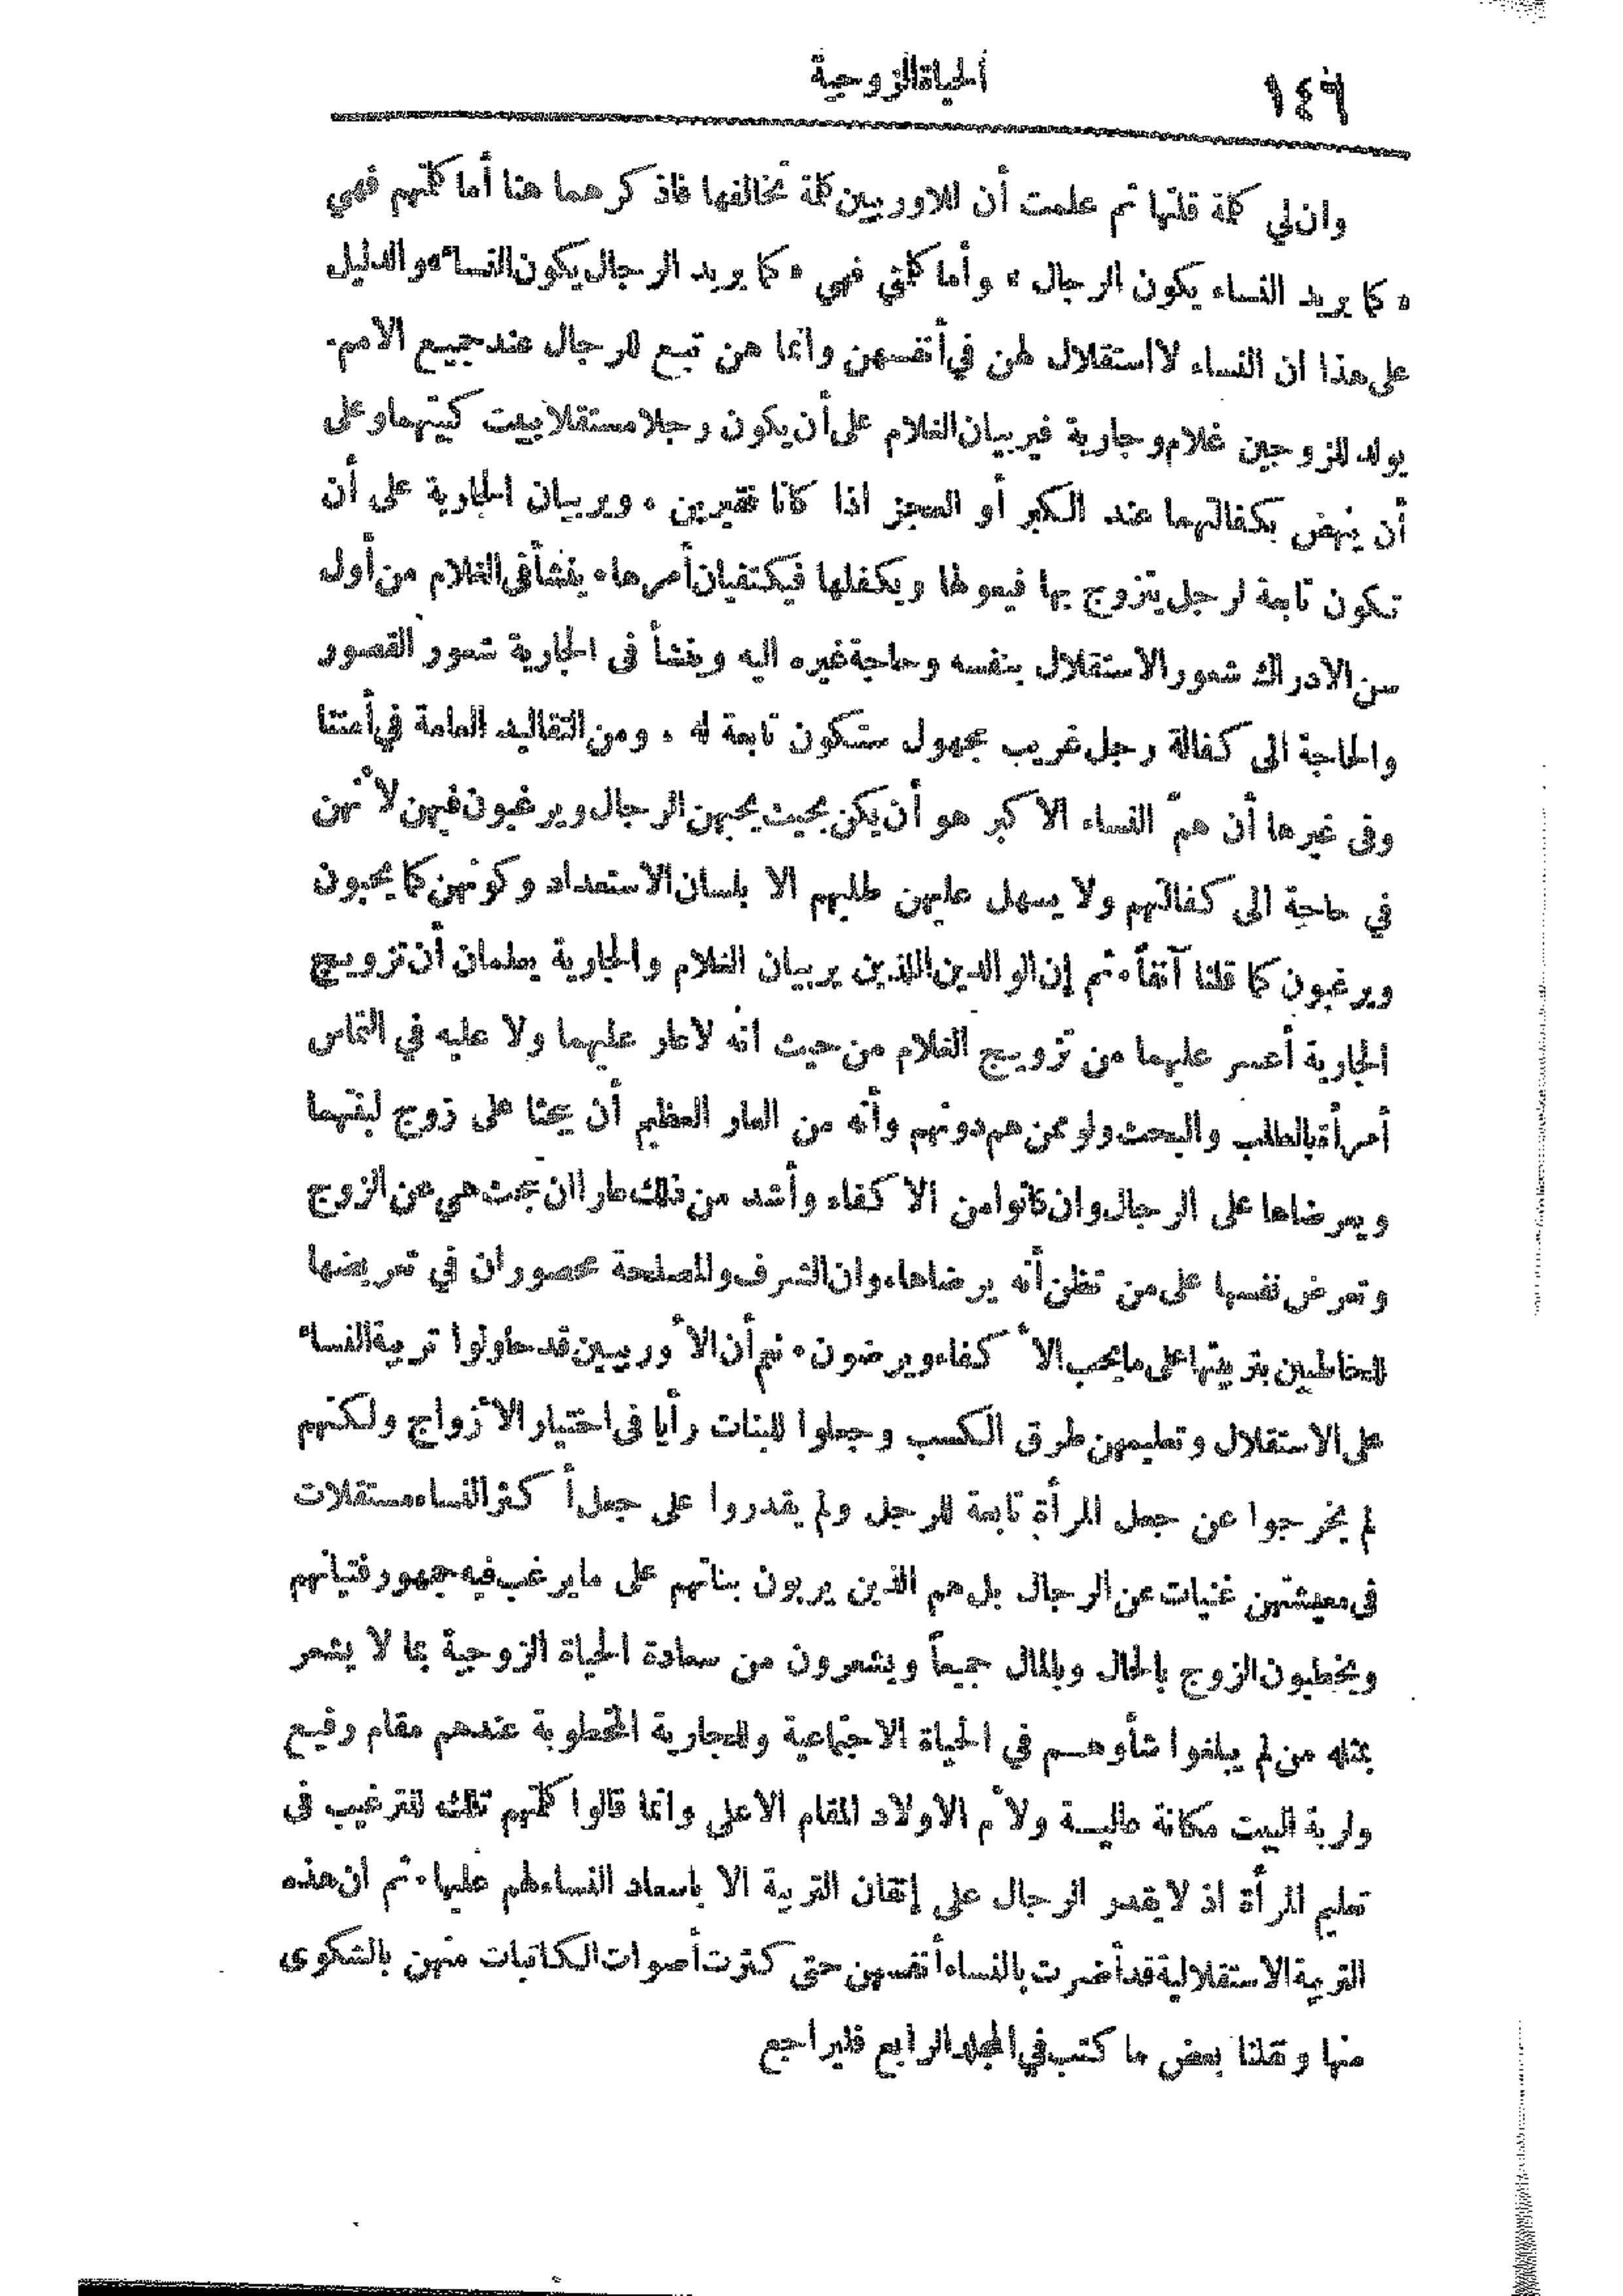 ١٤٦
الحياة الزوجية
وان لي كلمة قلتها ثم علمت أن للاوربيين كلمة تخالفها فاذكرهما هنا أما كلمتهم فهي
« كما يريد النساء يكون الرجال » وأما كلمتي فهي « كما يريد الرجال يكون النساء » والدليل
على هذا ان النساء لا استقلال لهن في أنفسهن وانما هن تبع للرجال عند جميع الامم.
يولد للزوجين غلام وجارية فيربيان الغلام على أن يكون رجلا مستقلا ببيت كبيتهما وعلى
أن ينهض بكفالتهما عند الكبر أو العجز اذا كانا فقيرين . ويربيان الجارية على أن
تكون تابعة لرجل يتزوج بها فيعولها ويكفلها فيكتفيان أمرها . ينشأ في الغلام من أول
سن الادراك شعور الاستقلال بنفسه وحاجة غيره اليه وينشأ في الجارية شعور القصور
والحاجة الى كفالة رجل غريب مجهول ستكون تابعة له . ومن التقاليد العامة في أمتنا
وفي غيرها أن همّ النساء الاكبر هو أن يكن بحيث يحبهن الرجال ويرغبون فيهن لأنهن
في حاجة الى كفالتهم ولا يسهل عليهن طلبهم الا بلسان الاستعداد وكونهن كما يحبون
ويرغبون كما قلنا آنفاً . ثم إن الوالدين اللذين يربيان الغلام والجارية يعلمان أن تزويج
الجارية أعسر عليهما من تزويج الغلام من حيث انه لا عار عليهما ولا عليه في التماس
امرأة بالطلب والبحث ولو ممن هم دونهم وأنه من العار العظيم أن يبحثا على زوج لبنتهما
ويعرضاها على الرجال وان كانوا من الاكفاء وأشد من ذلك عارا ان تبحث هي عن الزوج
وتعرض نفسها على من تظن أنه يرضاها . وان الشرف والمصلحة محصوران في تعريضها
للخاطبين بتربيتها على ما يحب الأكفاء ويرضون . نعم أن الأوربيين قد حاولوا تربية النساء
على الاستقلال وتعليمهن طرق الكسب وجعلوا للبنات رأيا في اختيار الأزواج ولكنهم
لم يخرجوا عن جعل المرأة تابعة للرجل ولم يقدروا على جعل أكثر النساء مستقلات
في معيشتهن غنيات عن الرجال بل هم الذين يربون بناتهم على ما يرغب فيه جمهور فتيانهم
ويخطبون الزوج بالحال وبالمال جميعاً ويشعرون من سعادة الحياة الزوجية بما لا يشعر
بمثله من لم يبلغوا شأوهم في الحياة الاجتماعية وللجارية المخطوبة عندهم مقام رفيع
ولربة البيت مكانة عالية ولأم الاولاد المقام الاعلى وانما قالوا كلمتهم تلك للترغيب في
تعليم المرأة اذ لا يقدر الرجال على إتقان التربية الا باسعاد النساء لهم عليها . ثم ان هذه
التربية الاستقلالية قد أضرت بالنساء أنفسهن حتى كثرت أصوات الكاتبات منهن بالشكوى
منها ونقلنا بعض ما كتب في المجلد الرابع فليراجع